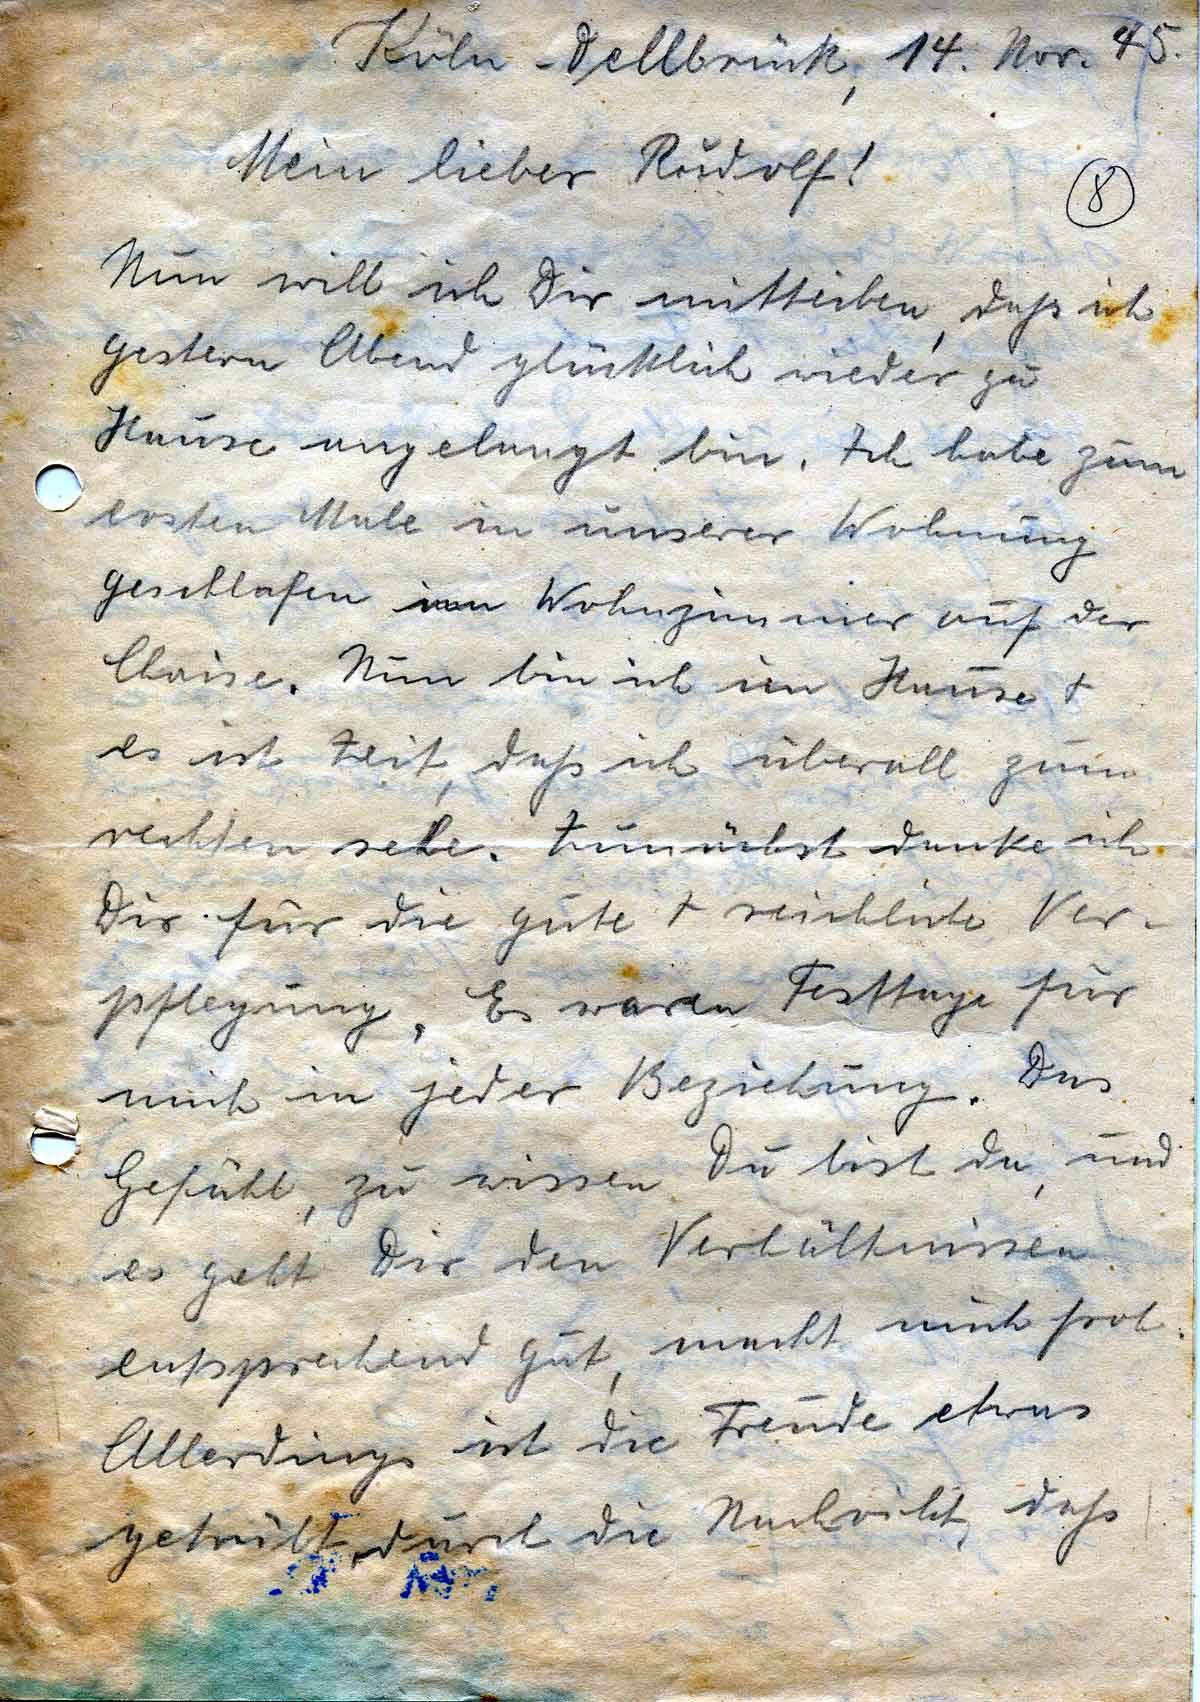 Köln-Dellbrück, 14. Nov. 45.
Mein lieber Rudolf!
8
Nun will ich Dir mitteilen, daß ich
gestern Abend glücklich wieder zu
Hause angelangt bin. Ich habe zum
ersten Male in unserer Wohnung
geschlafen im Wohnzimmer auf der
Chaise. Nun bin ich im Hause +
es ist Zeit, daß ich überall zum
rechten sehe. Zunächst danke ich
Dir für die gute + reichliche Ver-
pflegung. Es waren Festtage für
mich in jeder Beziehung. Das
Gefühl, zu wissen Du bist da, und
es geht Dir den Verhältnissen
entsprechend gut, macht mich froh.
Allerdings ist die Freude etwas
getrübt, durch die Nachricht, daß